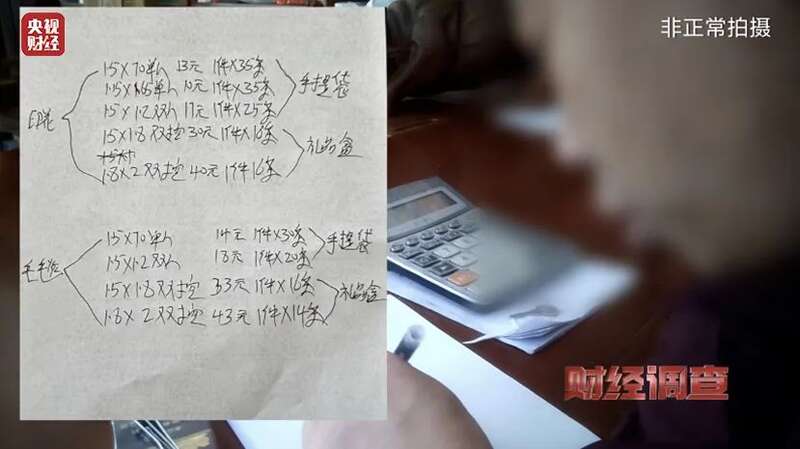 央视
财经
非正常拍摄
印花
1.5×70单人 13元 1件×35条
1.5×1.05单人 10元 1件×35条
1.5×1.2双人 17元 1件×25条
手提袋
1.5×1.8双控 30元 1件×18条
1.8×2双控 40元 1件16条
礼品盒
毛毛
1.5×70单人 14元 1件×30条
1.5×1.2双人 18元 1件×20条
手提袋
1.5×1.8双控 33元 1件×16条
1.8×2双控 43元 1件×14条
礼品盒
财经调查